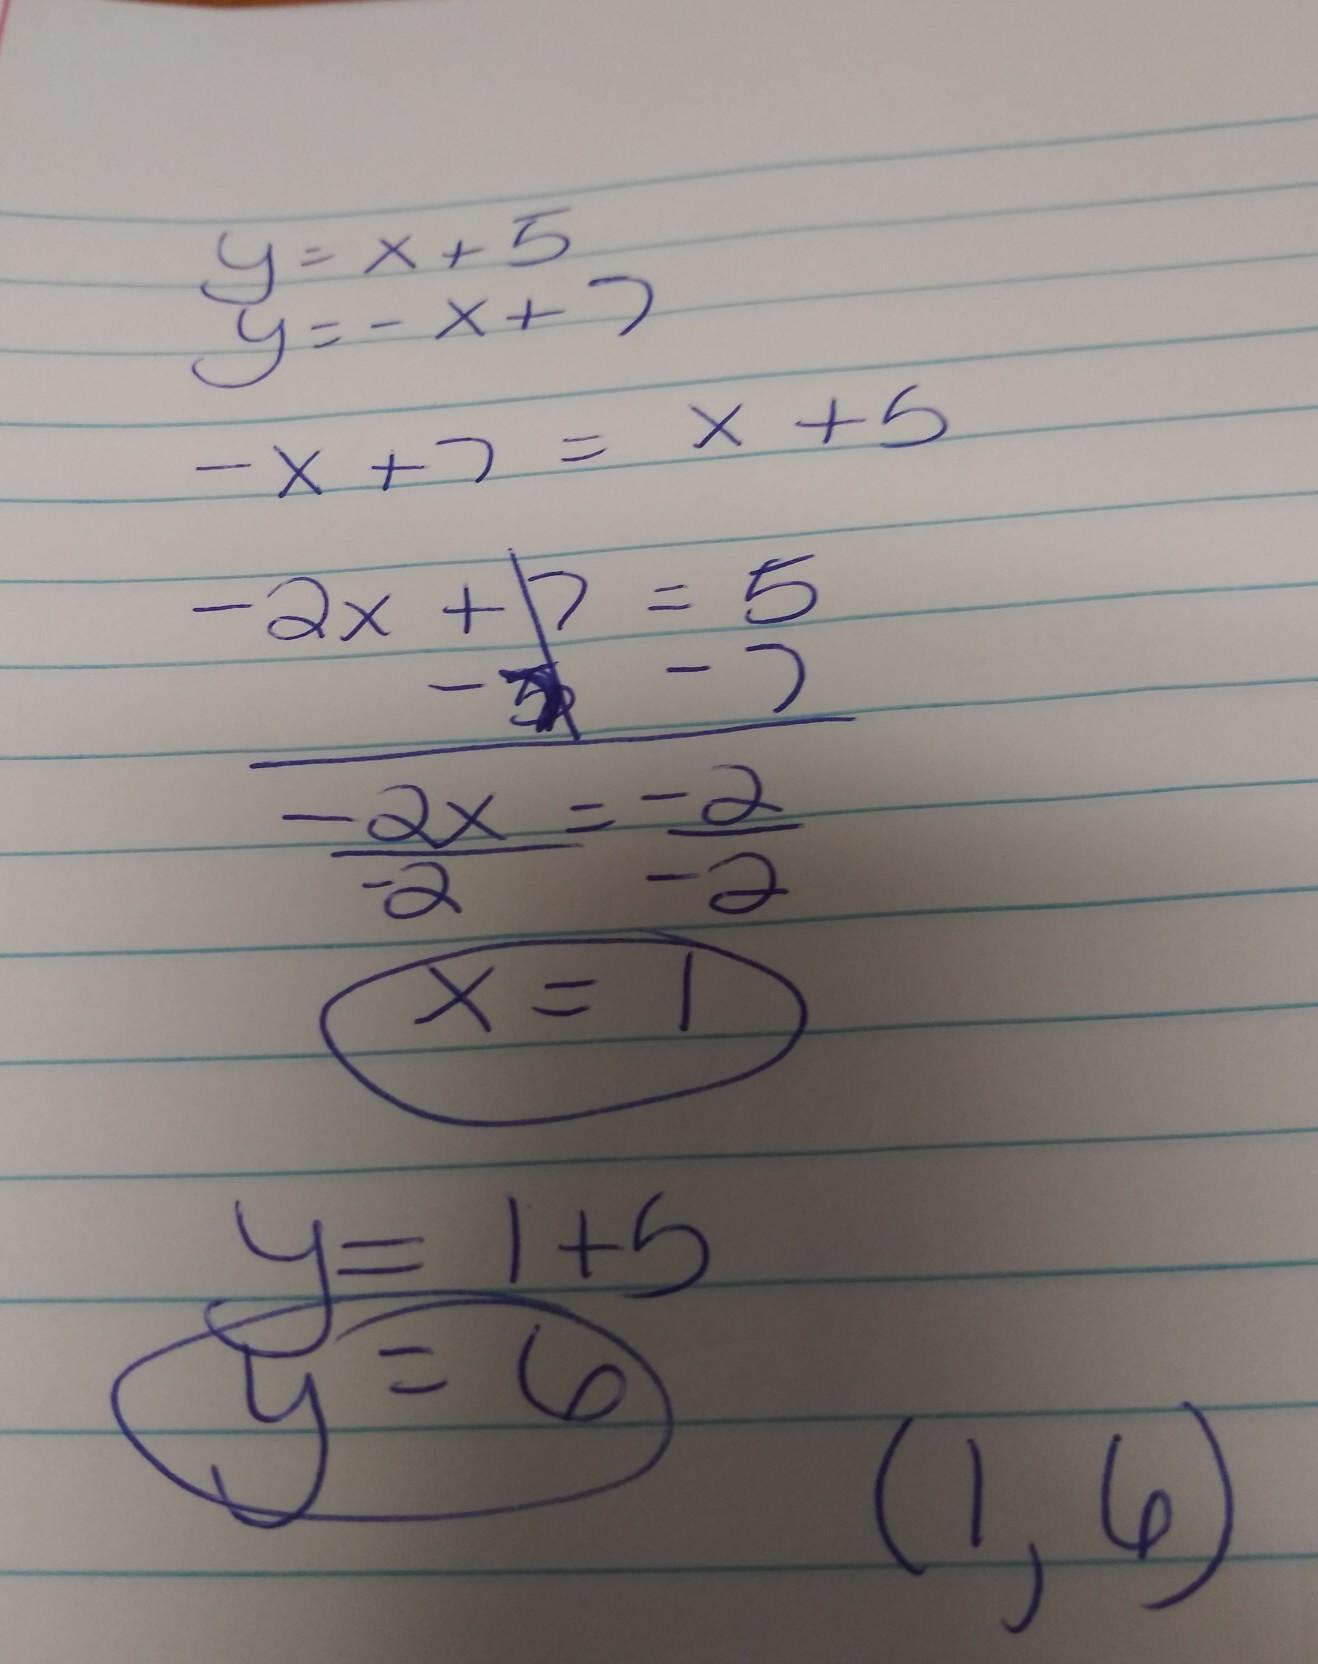 y = x + 5
y = - x + 7
- x + 7 = x + 5
- 2x + 7 = 5
- 7 - 7
- 2x = - 2
-2 - 2
x = 1
y = 1 + 5
y = 6
(1, 6)